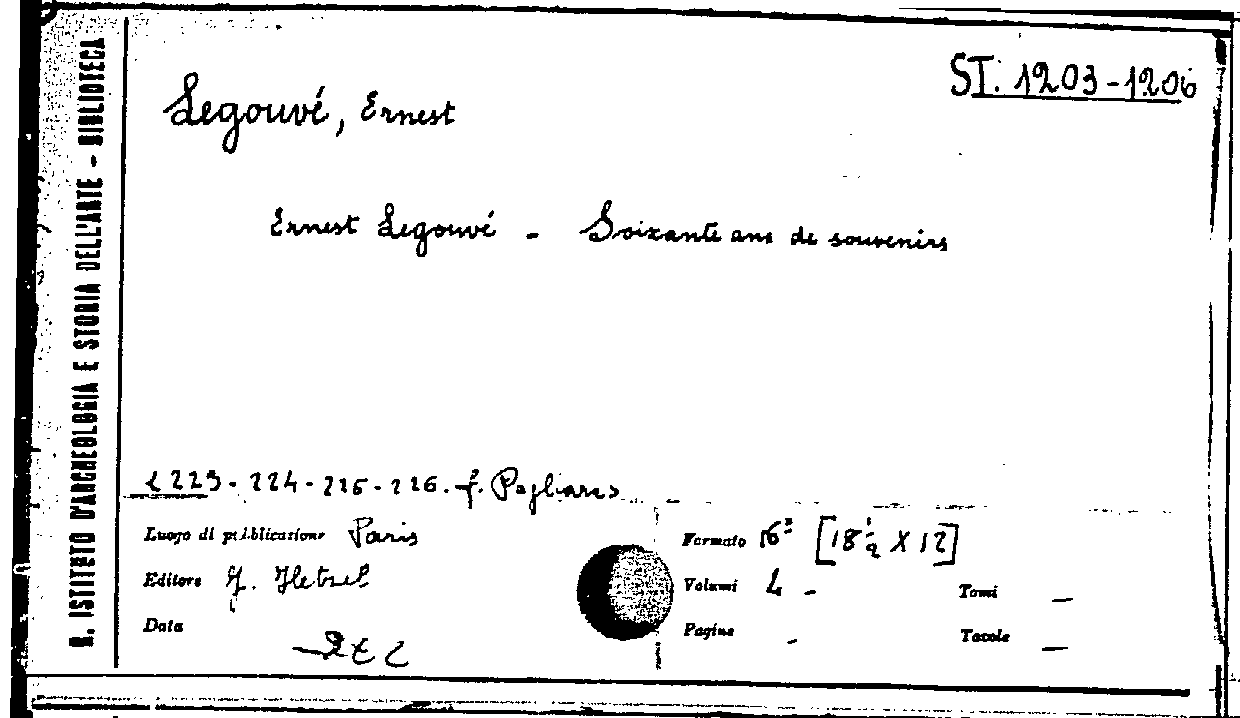 R. ISTITUTO D'ARCHEOLOGIA E STORIA DELL'ARTE - BIBLIOTECA
ST. 1203-1206
Legouvé, Ernest
Ernest Legouvé - Soixante ans de souvenirs
1223-224-225-226. f. Pagliares
Luogo di pubblicazione Paris
Editore J. Hetzel
Data
Formato 16º [18½ X 12]
Volumi 4 -
Tomi —
Pagine -
Tavole —